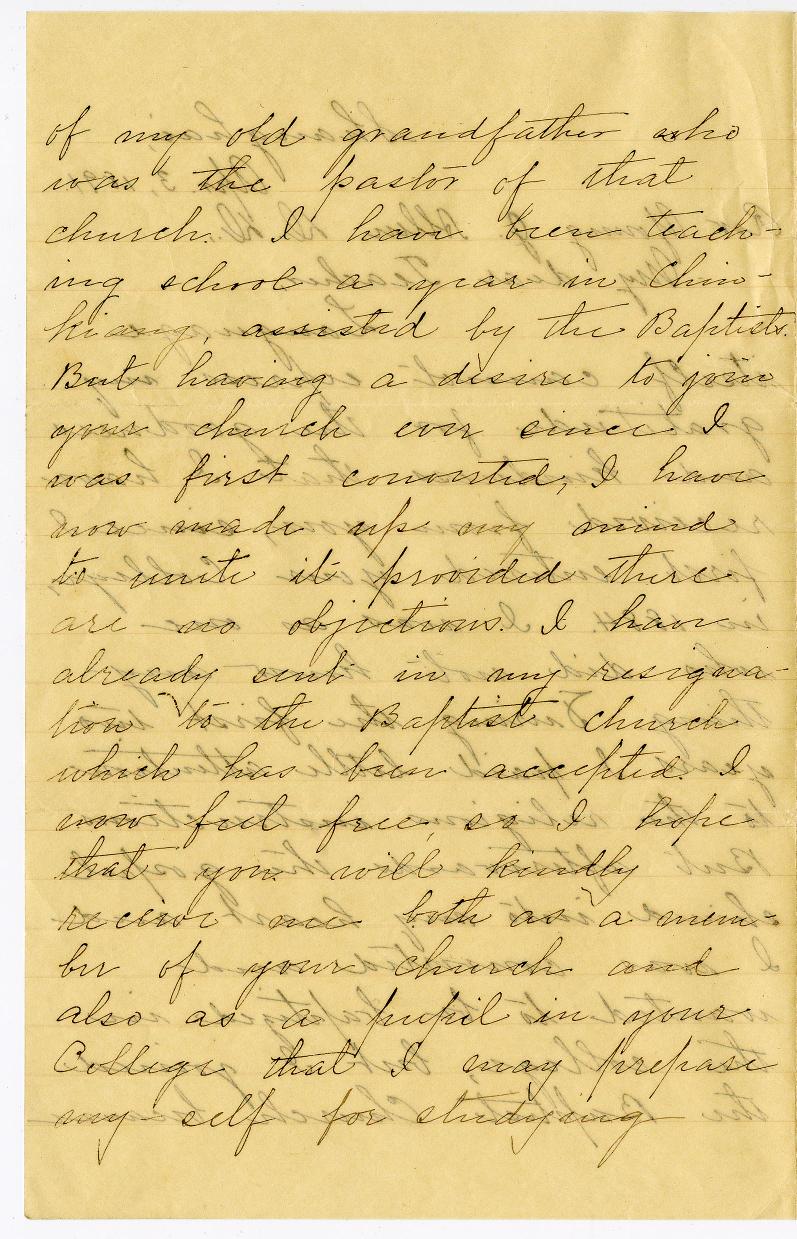 of my old grandfather who
was the pastor of that
church. I have been teach-
ing school a year in Chin-
kiang, assisted by the Baptists.
But having a desire to join
your church ever since I
was first converted, I have
now made up my mind
to unite it provided there
are no objections. I have
already sent in my resigna-
tion to the Baptist church
which has been accepted. I
now feel free, so I hope
that you will kindly
receive me both as a mem-
ber of your church and
also as a pupil in your
College that I may prepare
my self for studying